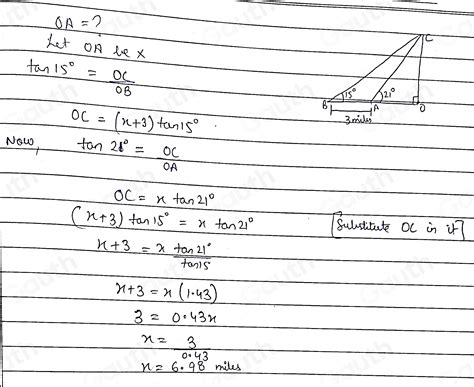 OA = ?
Let OA be x
tan 15° = OC/OB
OC = (x+3) tan 15°
Now, tan 21° = OC/OA
OC = x tan 21°
(x+3) tan 15° = x tan 21° [Substitute OC in it]
x+3 = x tan 21°/tan 15
x+3 = x (1.43)
3 = 0.43x
x = 3/0.43
x = 6.98 miles
C
15° 21°
B A O
3 miles